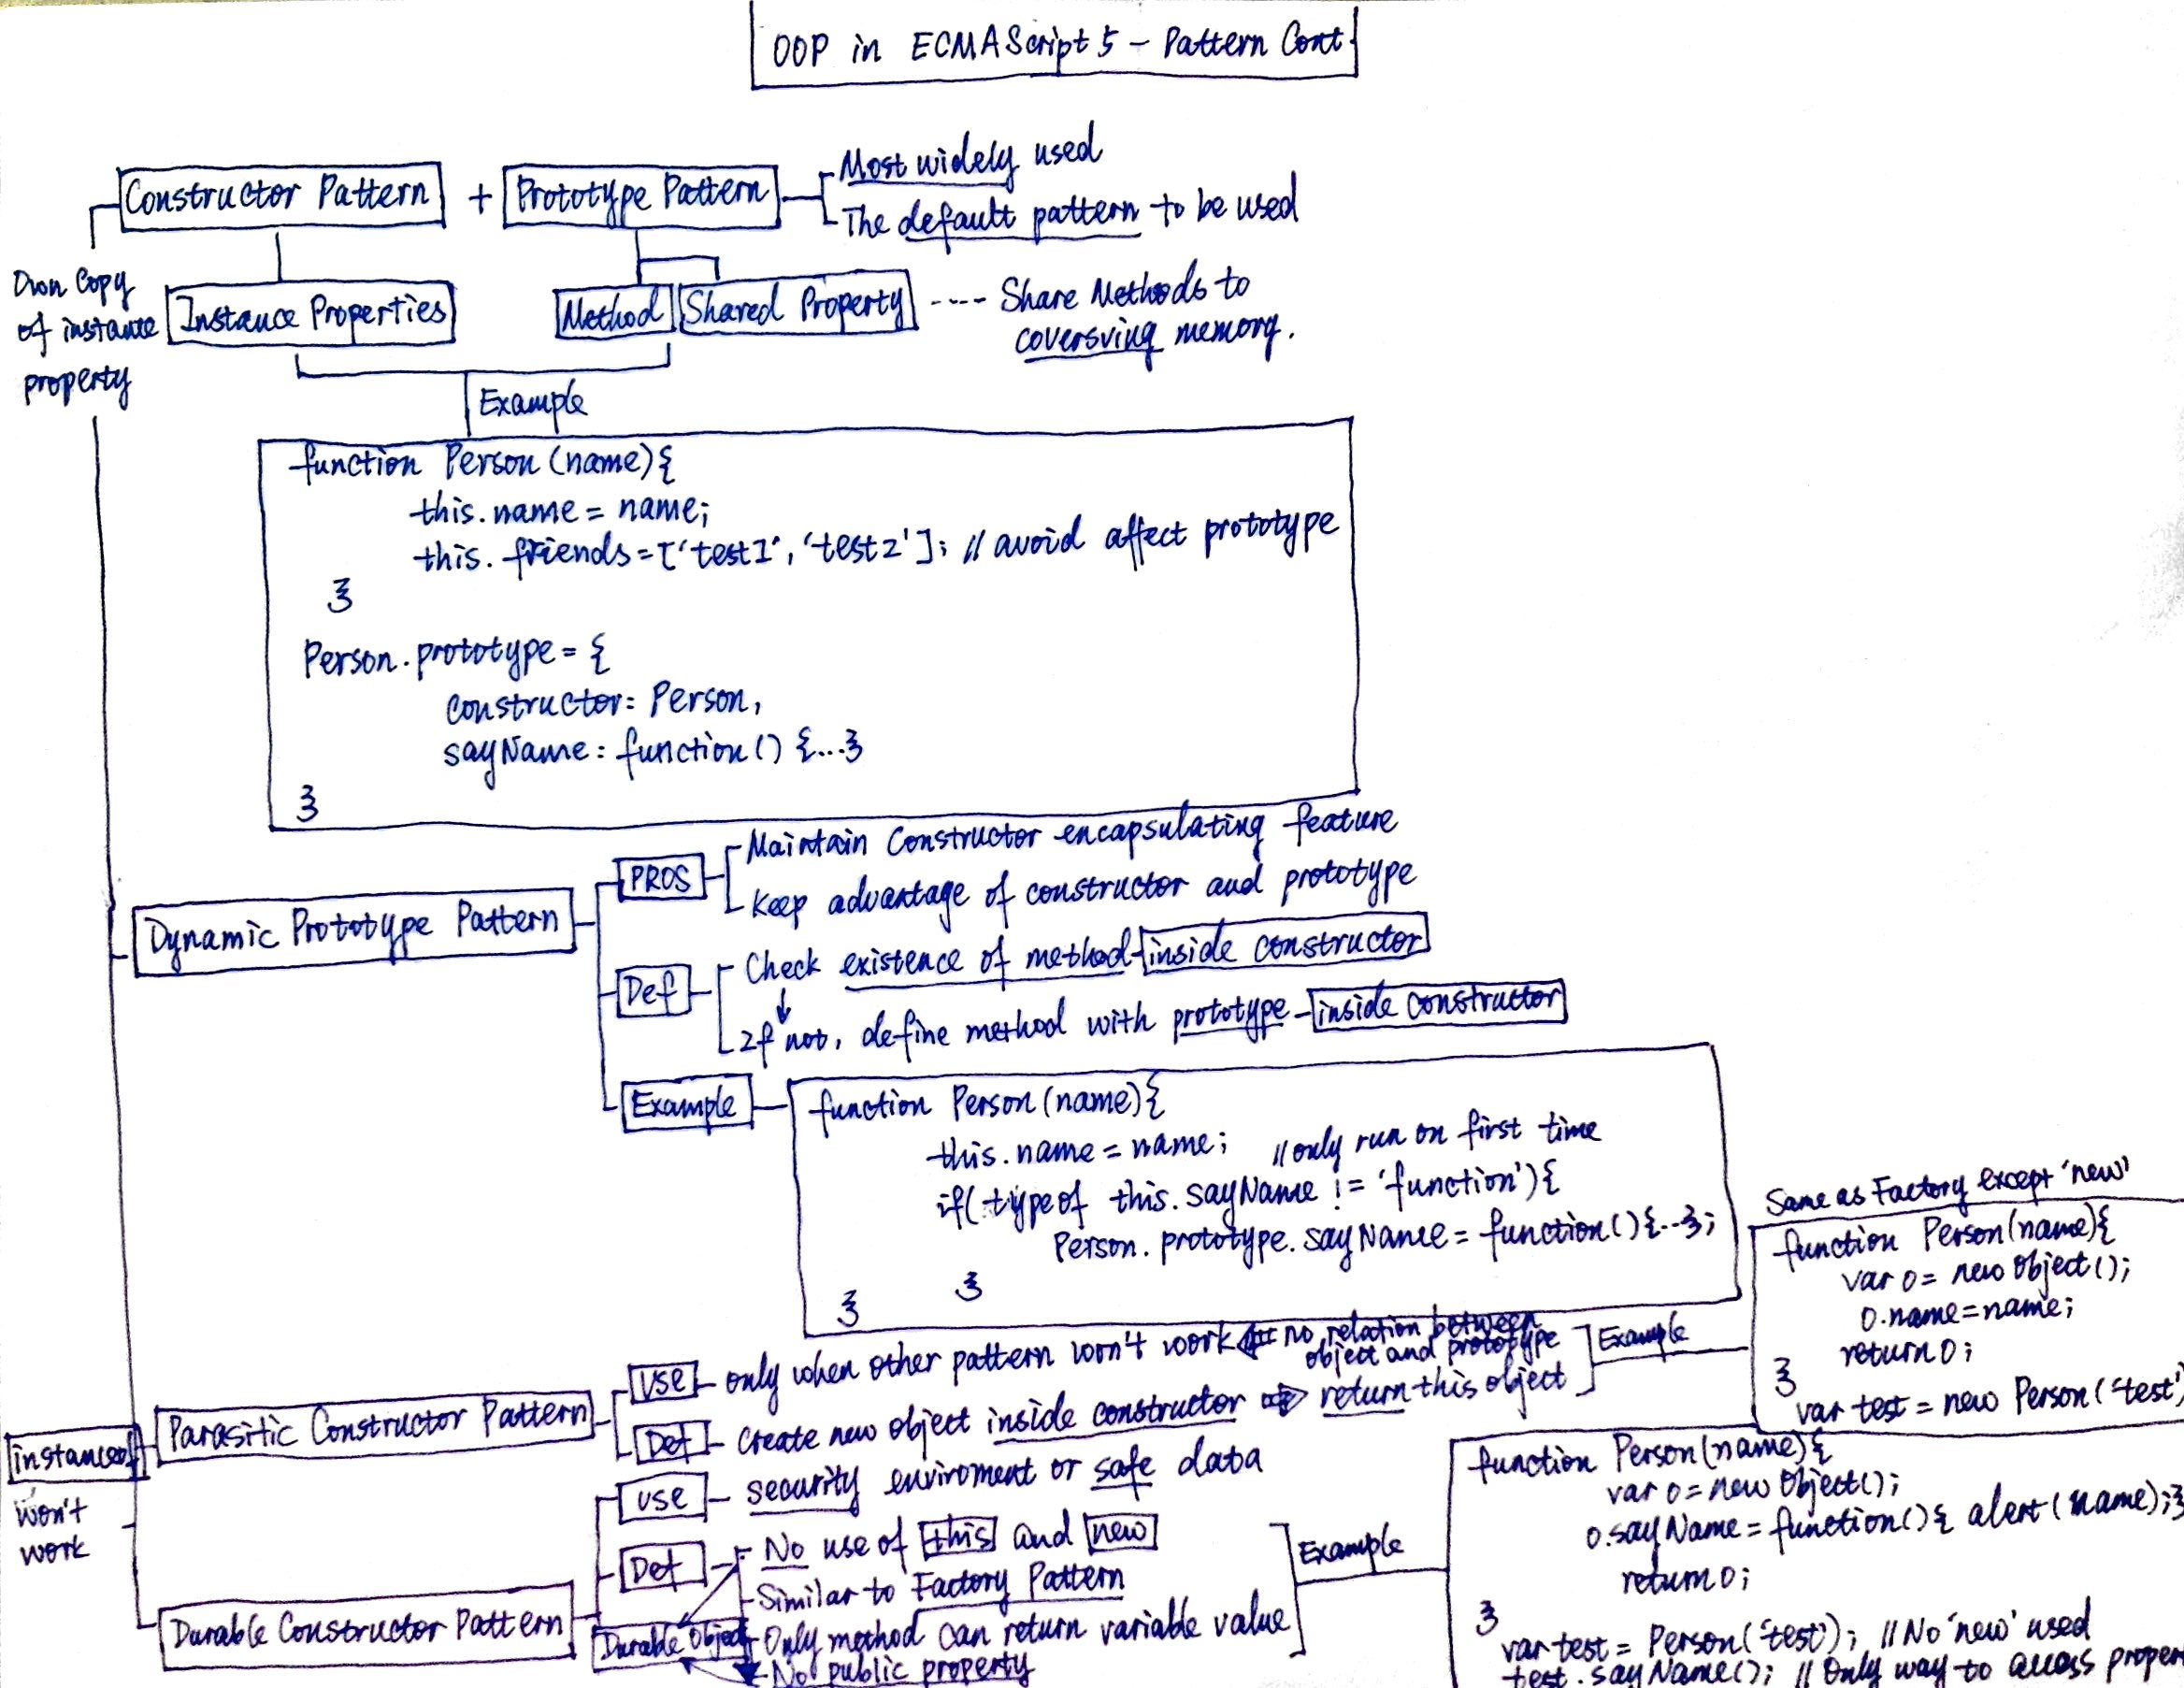 OOP in ECMAScript 5 - Pattern Cont
Constructor Pattern + Prototype Pattern
Most widely used
The default pattern to be used
Own Copy
of instance
property
Instance Properties
Method Shared Property ---- Share Methods to
coversving memory.
Example
function Person (name){
this.name = name;
this.friends = ['test1', 'test2']; // avoid affect prototype
}
Person.prototype = {
constructor: Person,
sayName: function () {...}
}
Dynamic Prototype Pattern
PROS
Maintain Constructor encapsulating feature
Keep advantage of constructor and prototype
Def
Check existence of method - inside constructor
If not, define method with prototype - inside constructor
Example
function Person (name){
this.name = name; // only run on first time
if( typeof this.sayName != 'function'){
Person.prototype.sayName = function(){...};
}
}
instanceof
won't
work
Parasitic Constructor Pattern
Use - only when other pattern won't work ⇐ no relation between
object and prototype
Def - Create new object inside constructor ⇒ return this object
Example
Same as Factory except 'new'
function Person(name){
var o = new Object();
o.name = name;
return o;
}
var test = new Person('test')
Durable Constructor Pattern
Use - security enviroment or safe data
Def
No use of this and new
Similar to Factory Pattern
Durable Object
Only method can return variable value
No public property
Example
function Person(name){
var o = new Object();
o.sayName = function(){ alert(name);}
return o;
}
var test = Person('test'); // No 'new' used
test.sayName(); // Only way to access proper